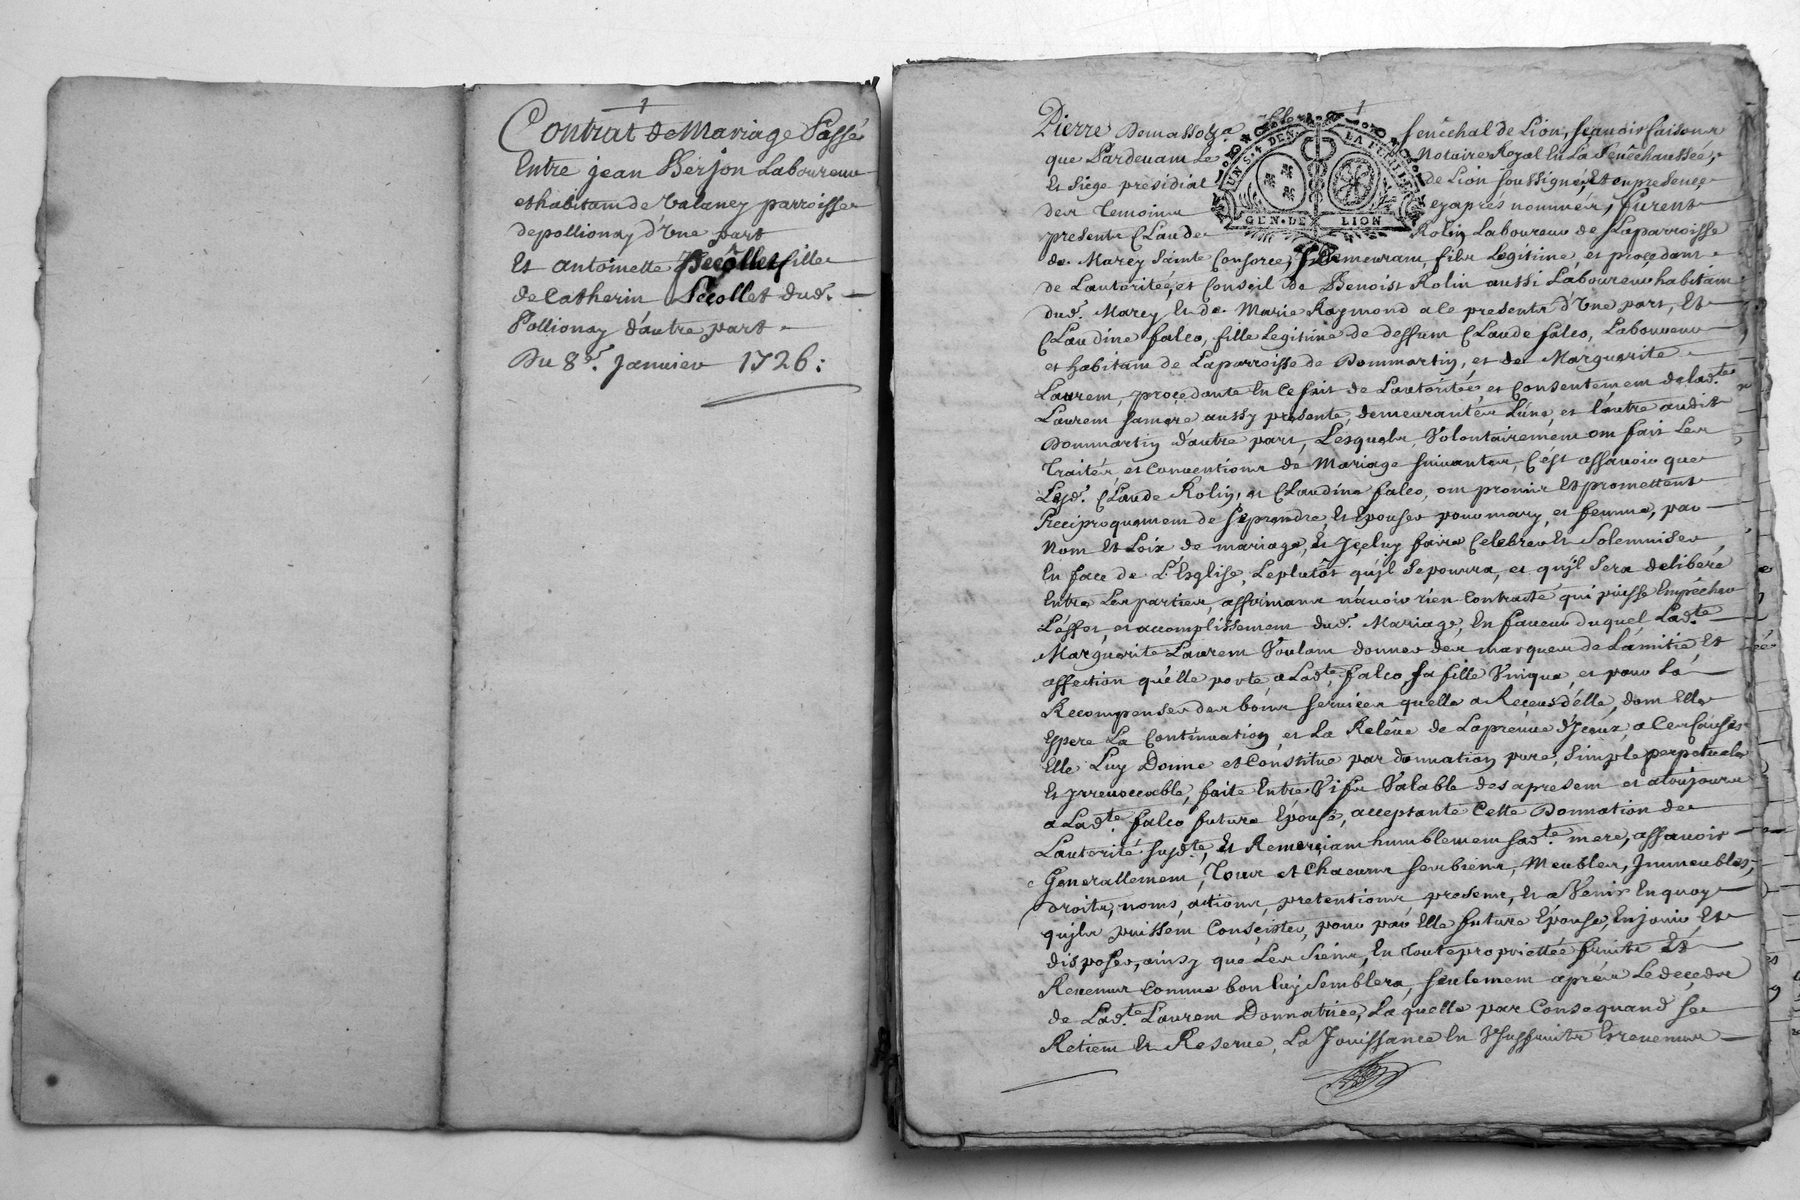 Contrat de Mariage Passé
Entre jean Berjon Laboureur
et habitant de Valaney parroisse
de pollionay d'Vne part
Et antoinette Decollet fille
de Catherin Decollet dud.
Pollionay d'autre part
Du 8.e Janvier 1726:
Pierre Demassoz
senéchal de Lion, sçauoir faisons
que Pardeuant Le
Notaire Royal En La Senêchaussée,
Et Siege présidial
de Lion soussigné, Et en presence
des Temoins
cy apres nommés, furent
presents Claude
Rolin Laboureur de Laparroisse
UN S. 4 DEN. LA FEUILLE
GEN. DE LION
de Marcy Sainte Consorce, y Demeurant, fils Legitime, et procedant
de Lautorité, et Conseil de Benoist Rolin aussi Laboureur habitant
dud. Marcy Et de Marie Raymond a ce presents d'Vne part, Et
Claudine falco, fille Legitime de deffunt Claude falco, Laboureur
et habitant de Laparroisse de Dommartin, et de Marguerite
Laurent, procedante En Ce fait de Lautorité, et Consentement de lad.te
Laurent sa mere aussy presente, demeurantes L'une, et l'autre audit
Dommartin d'autre part, Lesquels, Volontairement ont fait Les
Traités et Conventions de Mariage suivantes, C'est assauoir que
Lesd. Claude Rolin, et Claudine falco, ont promis Et promettent
Reciproquement de se prendre, Et Epouser pour mary, et femme, par
Nom Et Loix de mariage, Et Jceluy faire Celebrer Et Solemniser
En face de L'Esglise, Leplutôt qu'jl Sepourra, et qu'jl Sera deliberé
Entre Les parties, affirmans n'auoir rien Contracté qui puisse Empêcher
L'effet, et accomplissement dud. Mariage, En faueur duquel Lad.te
Marguerite Laurent Voulant donner des marques de Lamitié, Et
affection qu'elle porte, a Lad.te falco sa fille Vnique, et pour La
Recompenser des bons services quelle a Receus d'elle, dont Elle
Espere La Continuation, et La Releue de Lapreuue d'Jceux, a Ces Causes
Elle Luy Donne et Constitue par donnation pure, Simple perpetuelle
Et Jrreuoccable, faite Entre Vifs Valable des apresent et atoujours
a Lad.te falco future Epouse, acceptante Cette Donnation de
Lautorité susd.te, Et Remerciant humblement sad.te mere, assauoir
Generallement, Tous et Chacuns ses biens, Meubles, Jmmeubles,
droits, noms, actions, pretentions, presens, Et aVenir En quoy
qu'jls puissent Consister, pour par Elle future Epouse, En jouir, Et
disposer, ainsy que Les Siens, En toute proprietteé fruits Et
Reuenus Comme bon luy Semblera, seulement aprés Le decedz
de Lad.te Laurent Donnatrice, La quelle par Consequand se
Retient Et Reserue, La Jouissance En Vsuffruits Et reuenus